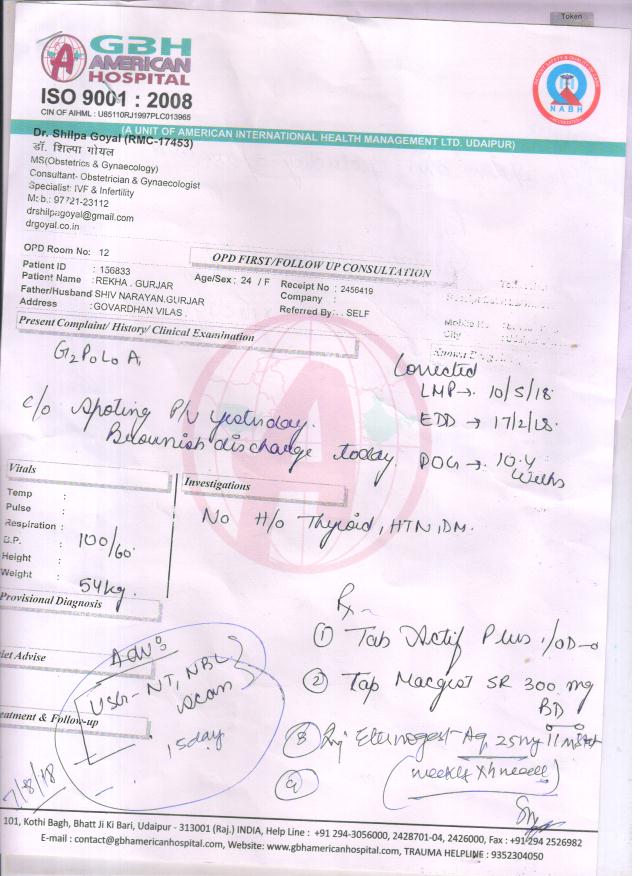 Token
GBH
AMERICAN
HOSPITAL
ISO 9001 : 2008
CIN OF AIHML : U85110RJ1997PLC013965
NABH
(A UNIT OF AMERICAN INTERNATIONAL HEALTH MANAGEMENT LTD. UDAIPUR)
Dr. Shilpa Goyal (RMC-17453)
डॉ. शिल्पा गोयल
MS(Obstetrics & Gynaecology)
Consultant- Obstetrician & Gynaecologist
Specialist: IVF & Infertility
Mob.: 97721-23112
drshilpagoyal@gmail.com
drgoyal.co.in
OPD Room No: 12
OPD FIRST/FOLLOW UP CONSULTATION
Patient ID : 156833
Patient Name : REKHA . GURJAR Age/Sex : 24 / F Receipt No : 2456419
Father/Husband SHIV NARAYAN.GURJAR Company :
Address : GOVARDHAN VILAS Referred By : SELF
Mobile
City
Present Complaint/ History/ Clinical Examination
G2P0L0A1
Corrected
LMP → 10/5/18
EDD → 17/2/18
POG → 10.4
Weeks
c/o Spoting P/V yesterday.
Brounish discharge today.
Vitals
Investigations
Temp :
Pulse :
Respiration :
B.P. : 100/60
Height :
Weight : 54kg.
No H/o Thyroid, HTN, DM.
Provisional Diagnosis
Rx
1 Tab Actif Plus 1/OD
2 Tap Macgest SR 300 mg
BD
3 Inj Aq 25mg
weekly
4
Adv:
USG - NT, NBL
scan
15day
iet Advise
eatment & Follow-up
7/8/18
101, Kothi Bagh, Bhatt Ji Ki Bari, Udaipur - 313001 (Raj.) INDIA, Help Line : +91 294-3056000, 2428701-04, 2426000, Fax : +91 294 2526982
E-mail : contact@gbhamericanhospital.com, Website: www.gbhamericanhospital.com, TRAUMA HELPLINE : 9352304050